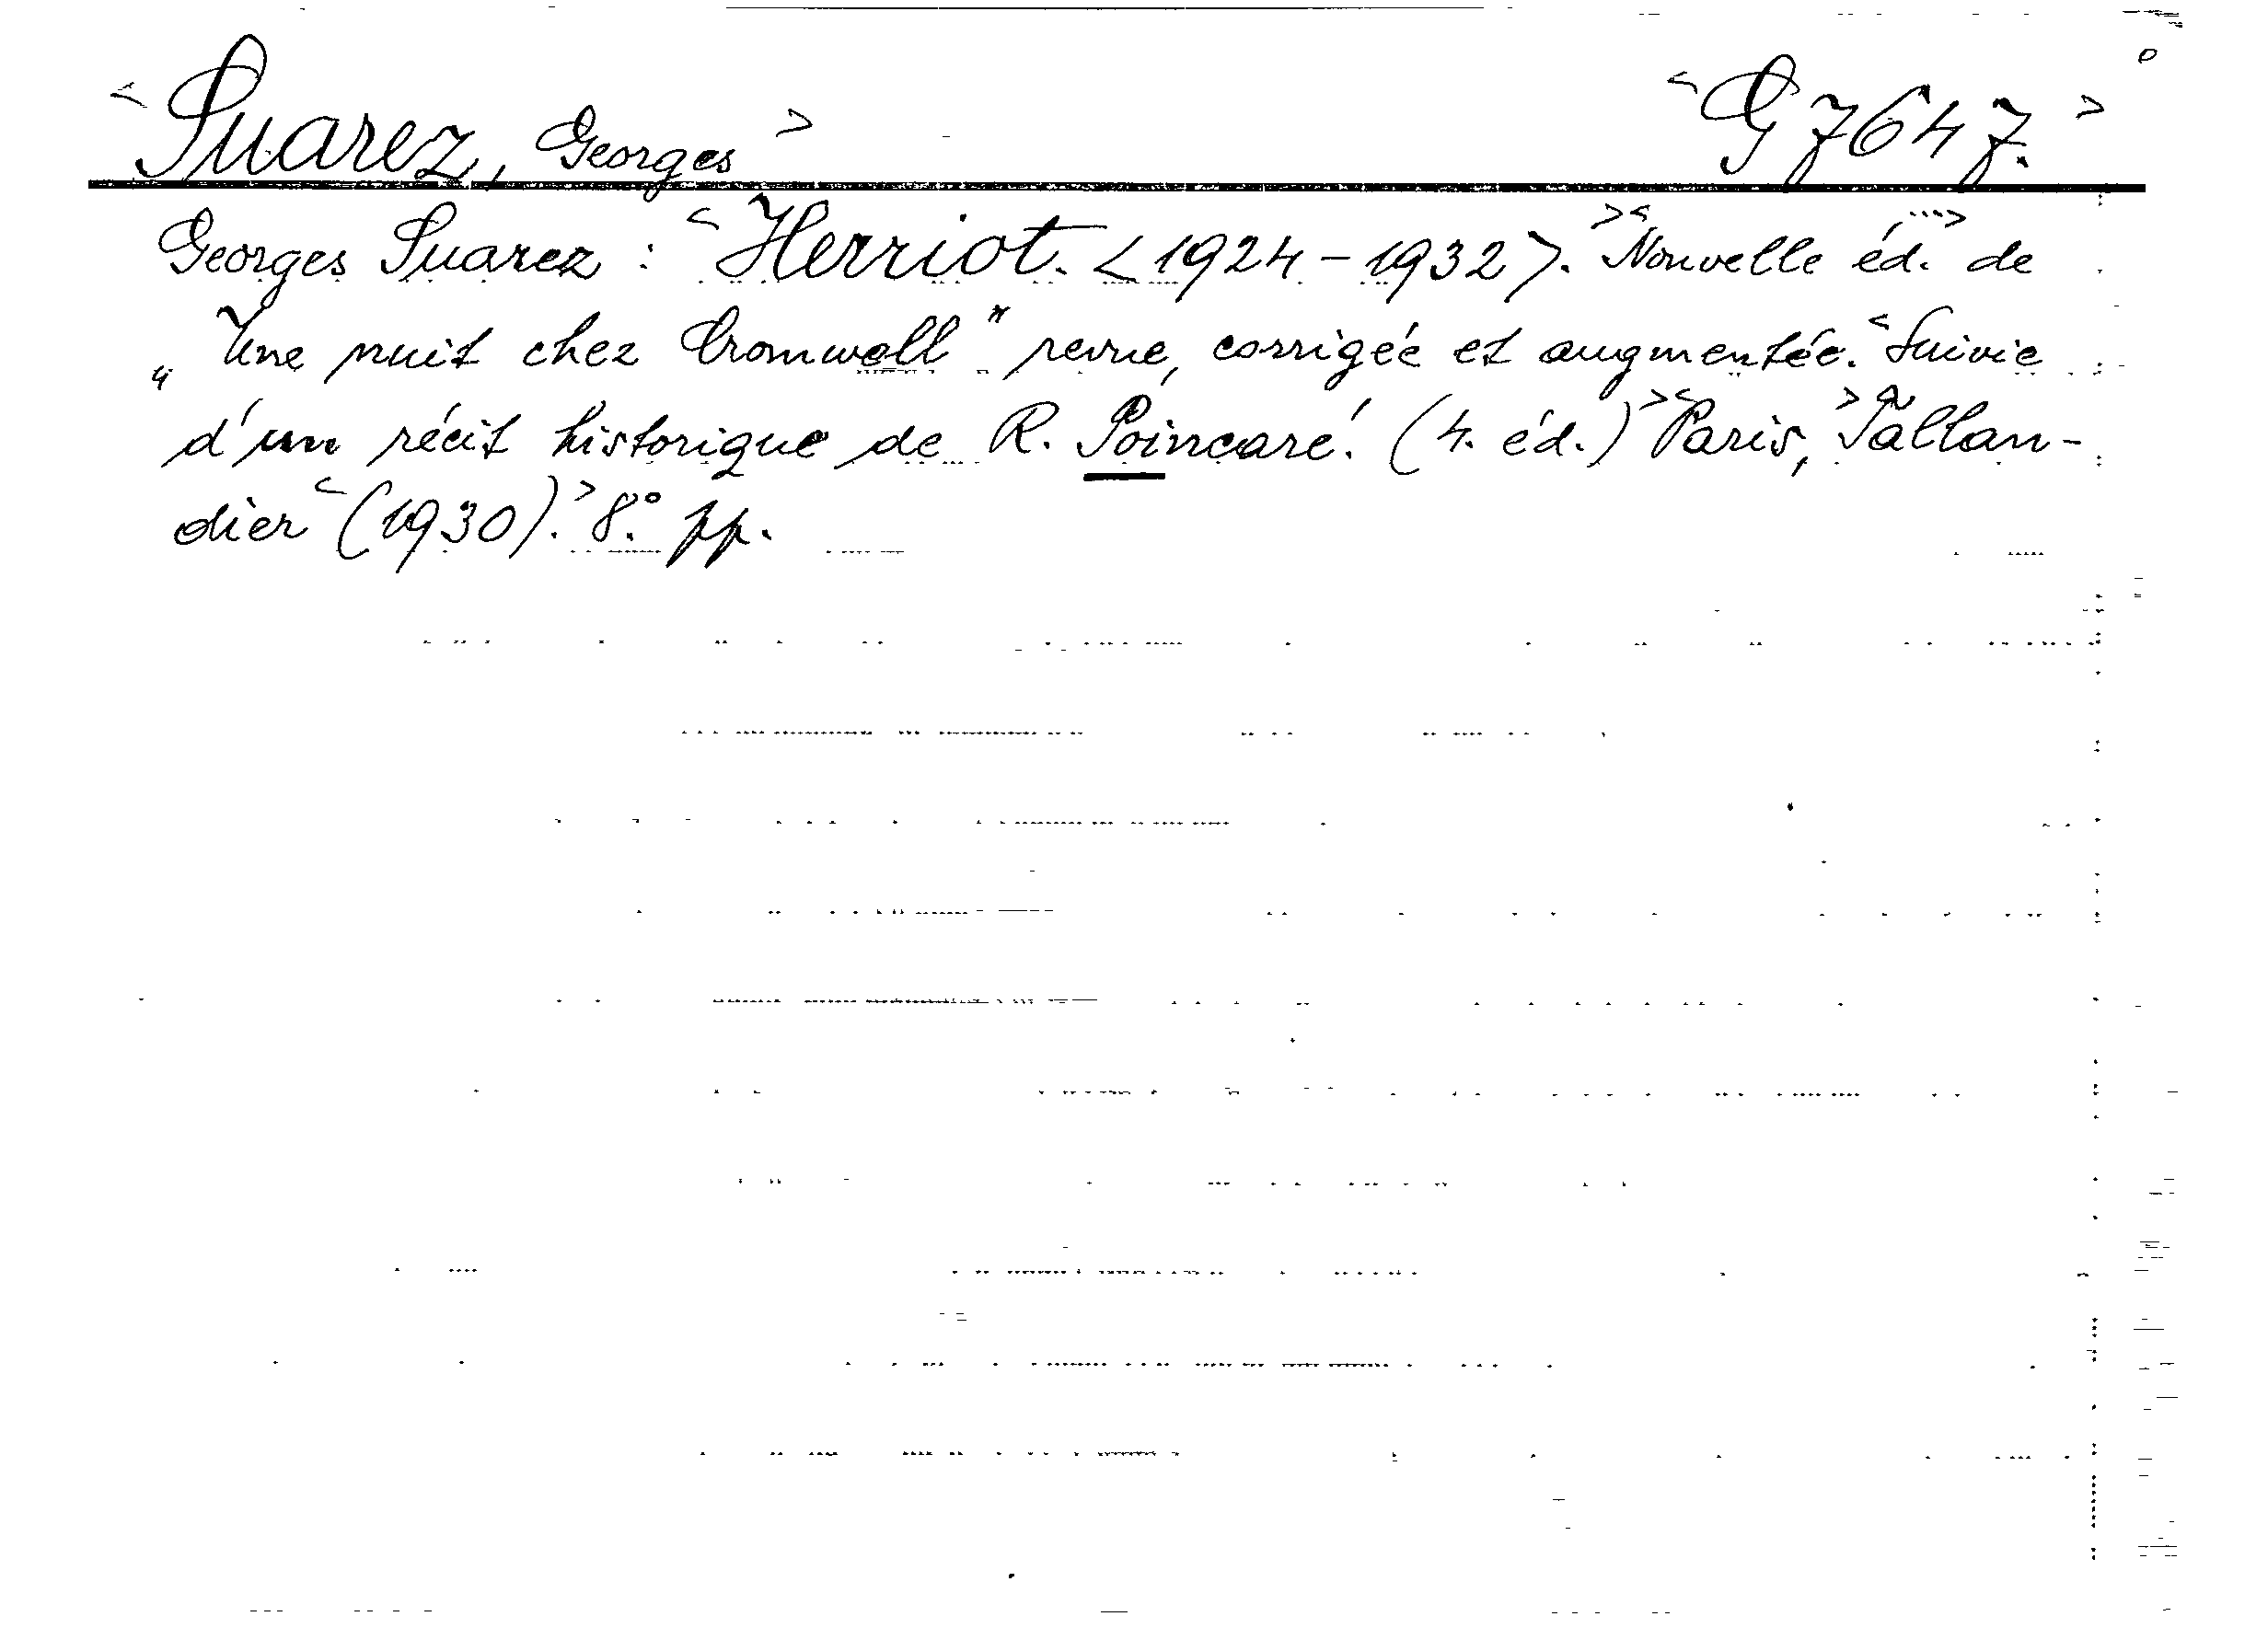 Suarez, Georges G 7647.
Georges Suarez : Herriot. <1924-1932>. Nouvelle éd. de
„Une nuit chez Cromwell" revue, corrigée et augmentée. Suivie
d'un récit historique de R. Poincaré. (4. éd.) Paris, Tallan-
dier (1930). 8° pp.